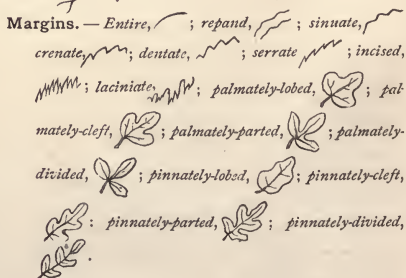 Margins. — Entire, ; repand, ; sinuate,
crenate, ; dentate, ; serrate ; incised,
; laciniate, ; palmately-lobed, ; pal-
mately-cleft, ; palmately-parted, ; palmately-
divided, ; pinnately-lobed, ; pinnately-cleft,
: pinnately-parted, ; pinnately-divided,
.